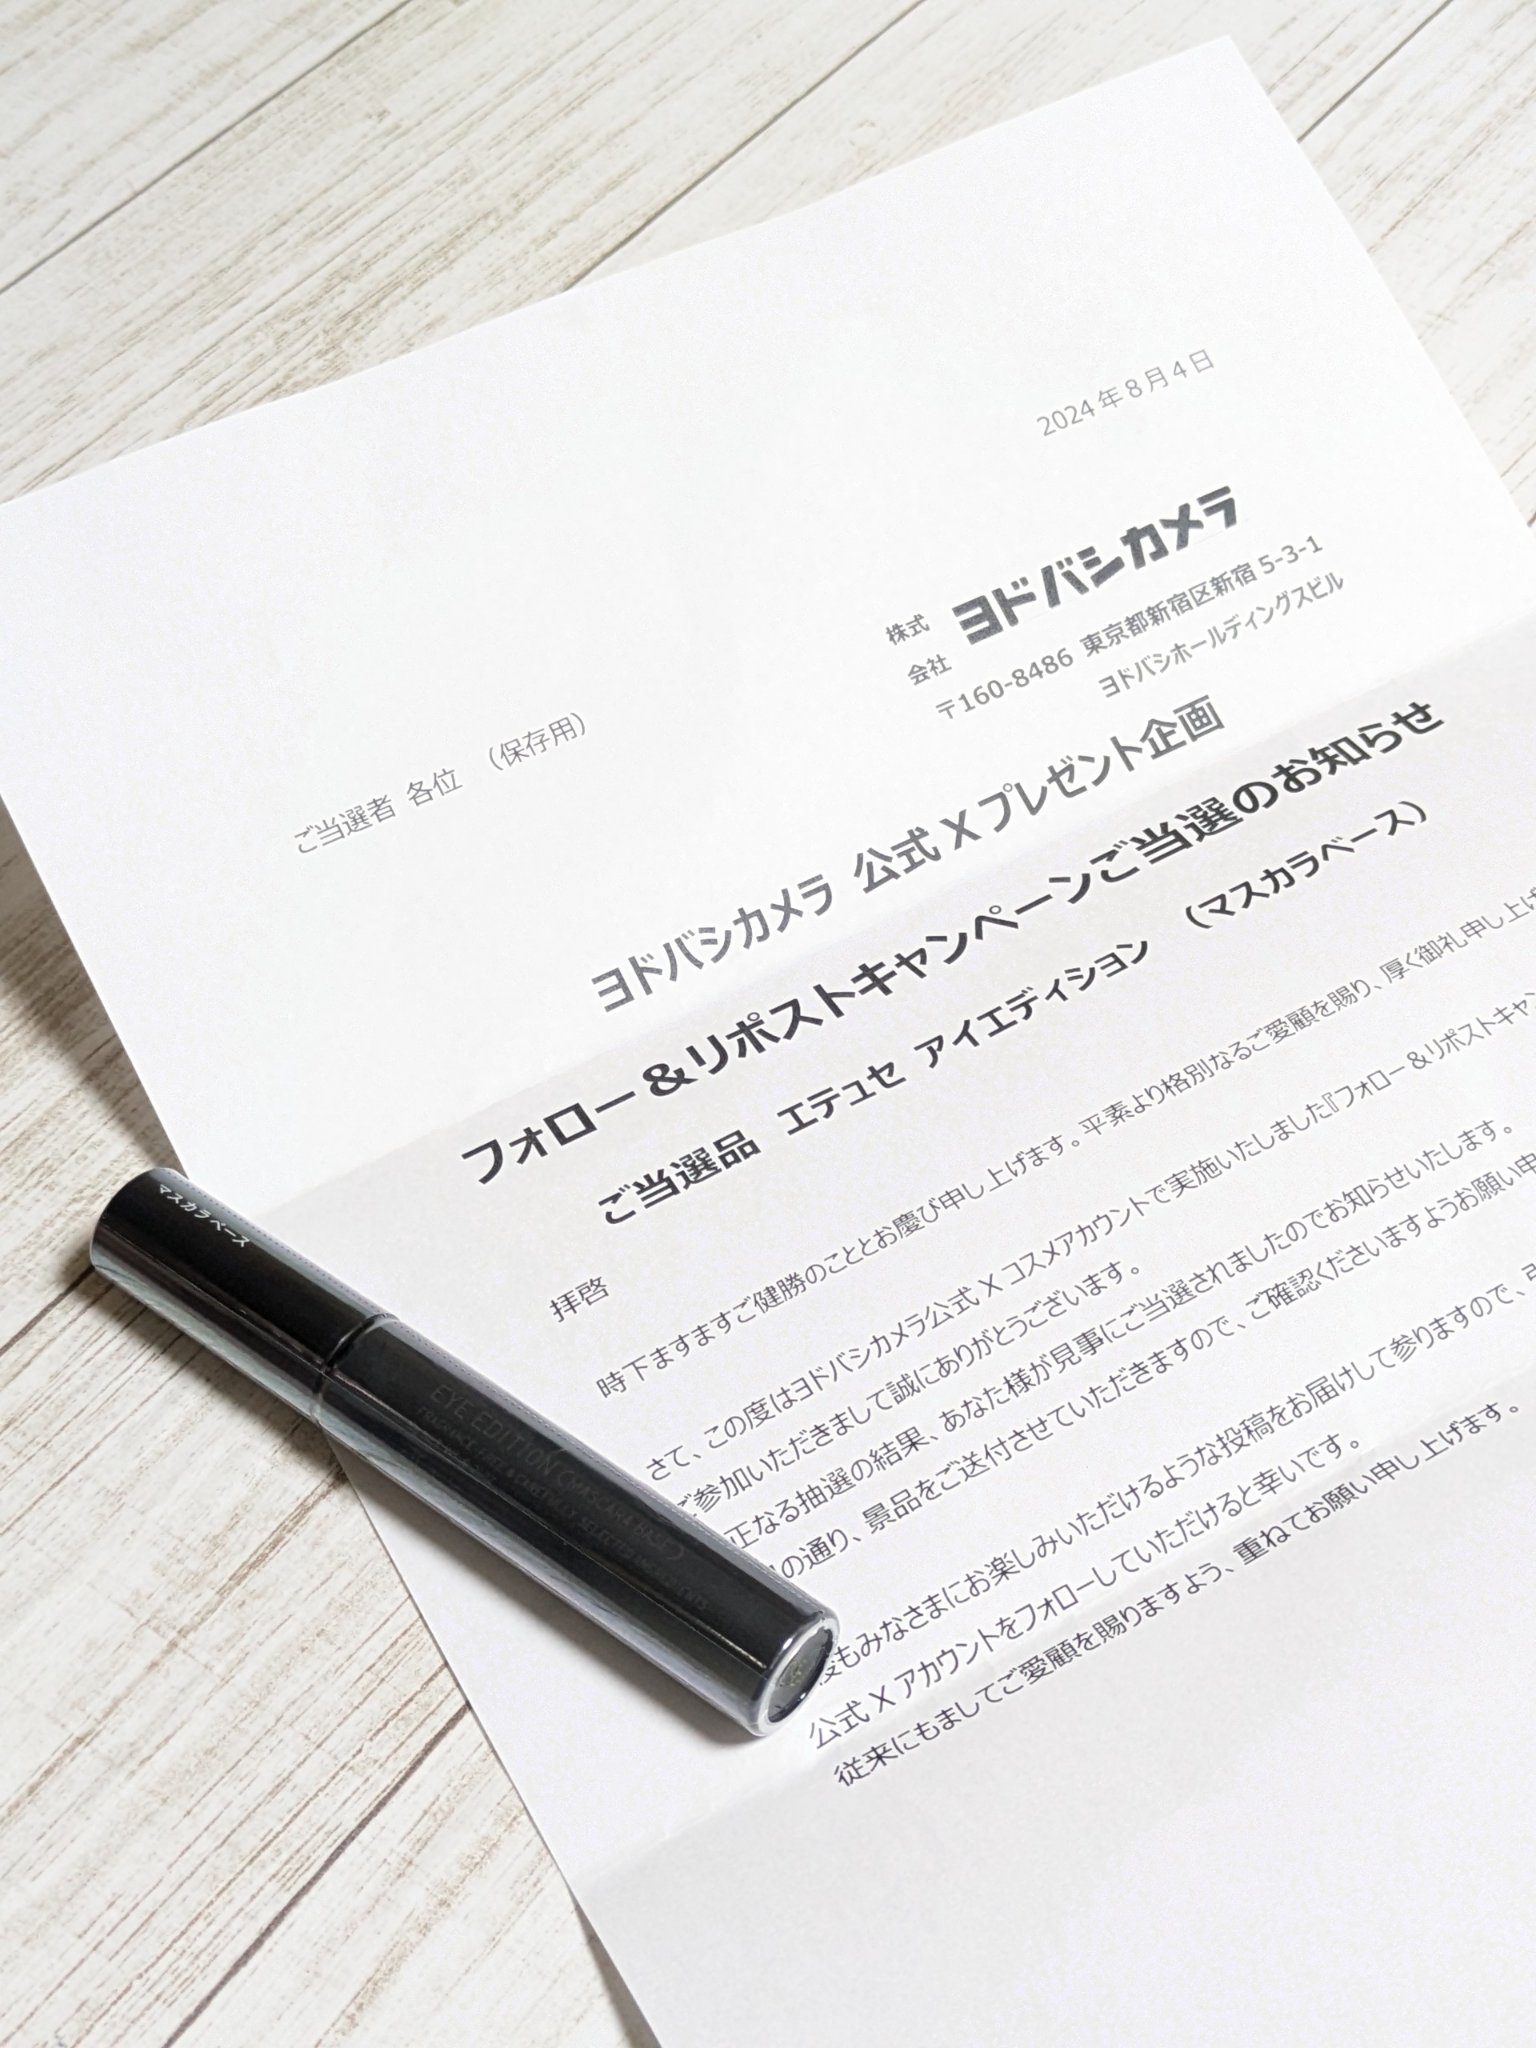 2024年8月4日
株式会社 ヨドバシカメラ
〒160-8486 東京都新宿区新宿 5-3-1
ヨドバシホールディングスビル
ご当選者 各位 （保存用）
ヨドバシカメラ 公式 X プレゼント企画
フォロー＆リポストキャンペーンご当選のお知らせ
ご当選品 エテュセ アイエディション （マスカラベース）
拝啓
時下ますますご健勝のこととお慶び申し上げます。平素より格別なるご愛顧を賜り、厚く御礼申し上げ
さて、この度はヨドバシカメラ公式 X コスメアカウントで実施いたしました『フォロー＆リポストキャン
ご参加いただきまして誠にありがとうございます。
正なる抽選の結果、あなた様が見事にご当選されましたのでお知らせいたします。
の通り、景品をご送付させていただきますので、ご確認くださいますようお願い申
もみなさまにお楽しみいただけるような投稿をお届けして参りますので、
公式 X アカウントをフォローしていただけると幸いです。
従来にもましてご愛顧を賜りますよう、重ねてお願い申し上げます。
マスカラベース
EYE EDITION (MASCARA BASE)
FRAGRANCE FREE & CAREFULLY SELECTED INGREDIENTS